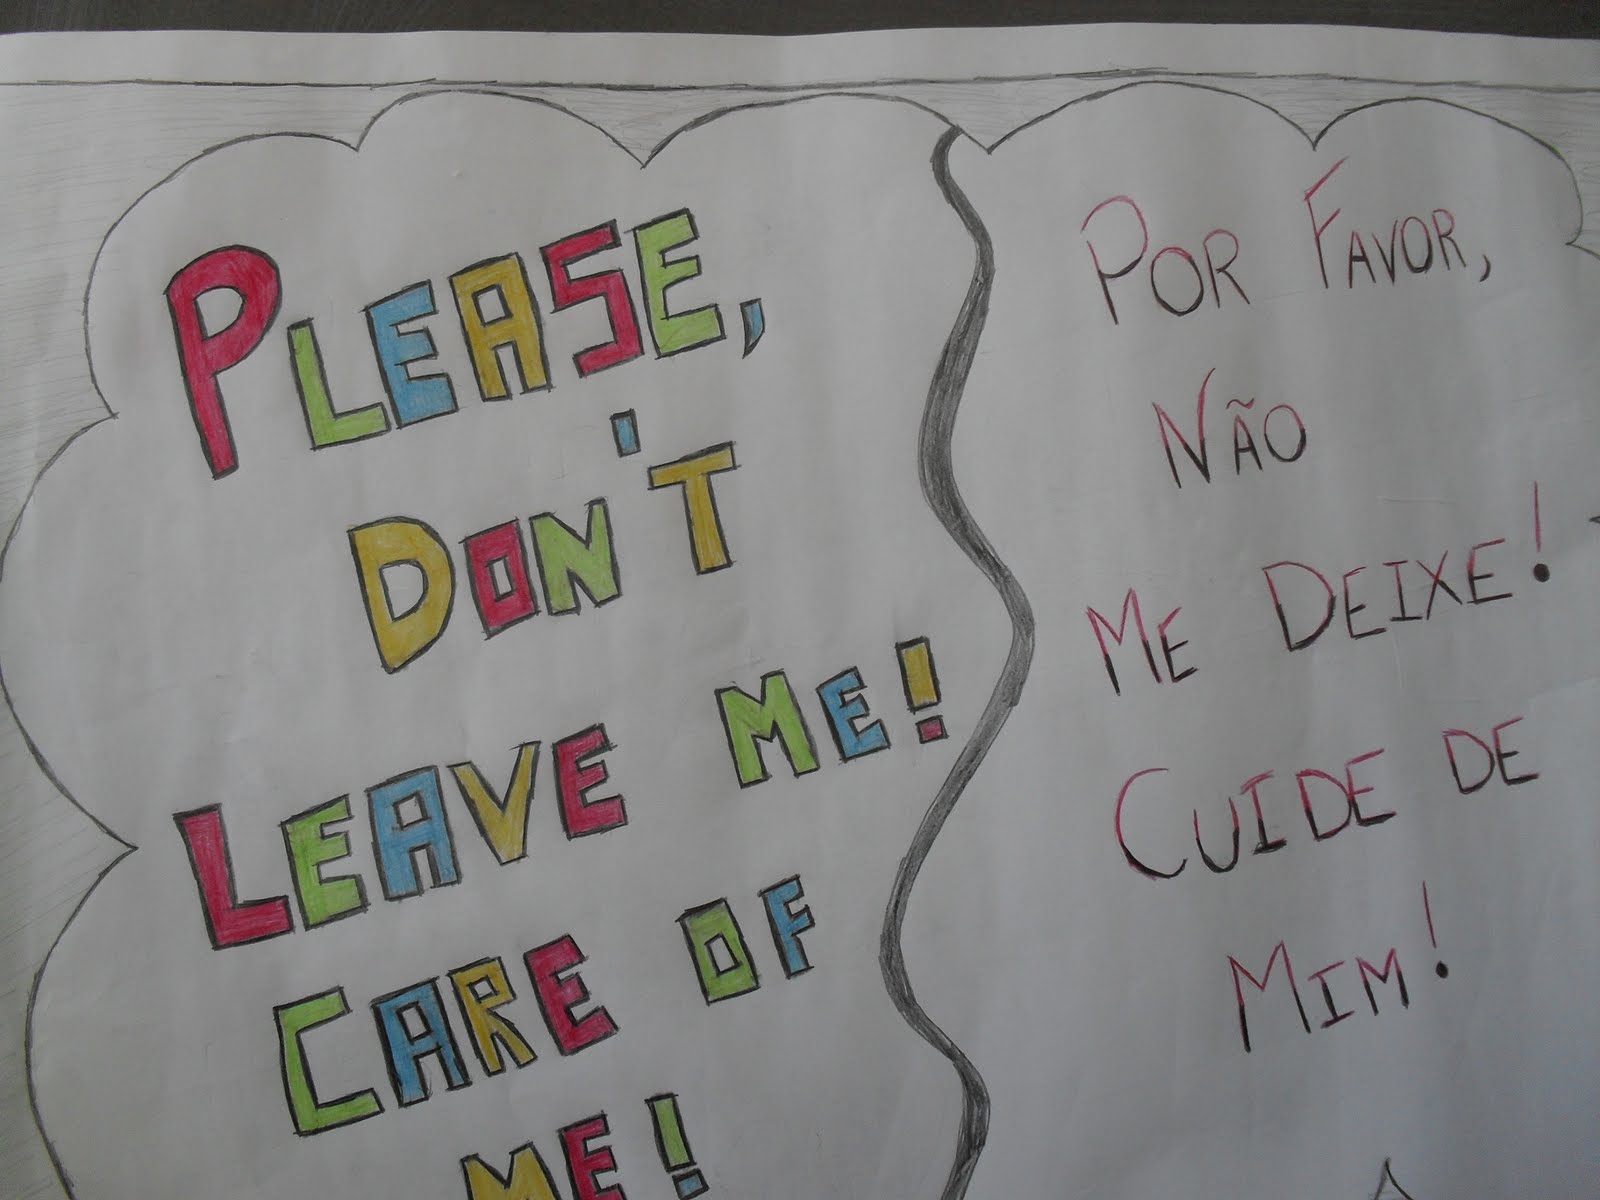 PLEASE,
DON'T
LEAVE ME!
CARE OF
ME!
POR FAVOR,
NÃO
ME DEIXE!
CUIDE DE
MIM!